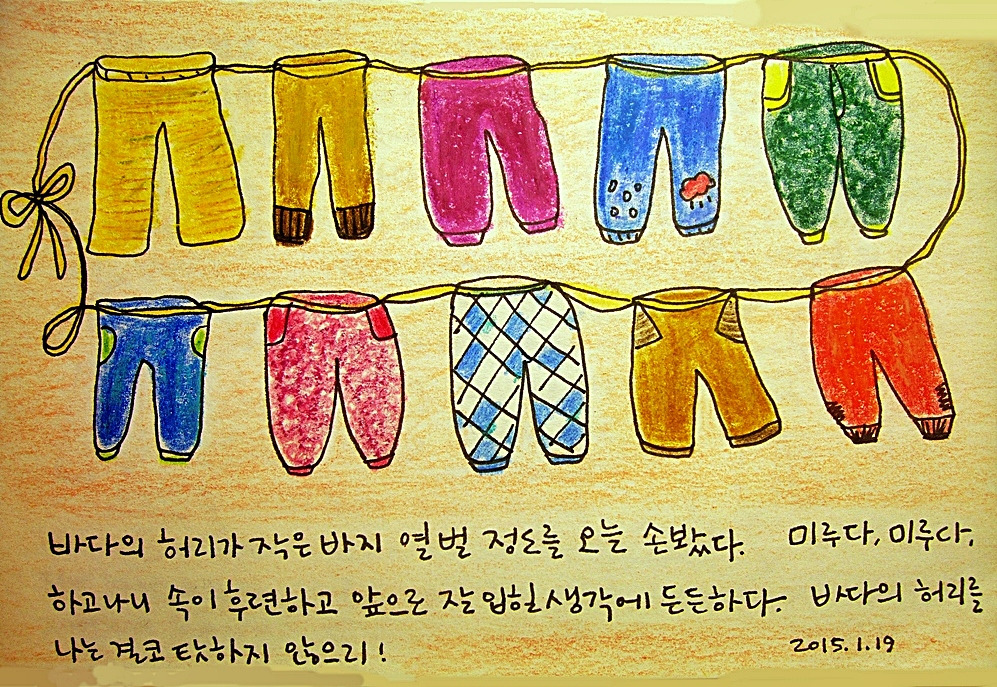 바다의 허리가 작은 바지 열벌 정도를 오늘 손봤다. 미루다, 미루다,
하고나니 속이 후련하고 앞으로 잘 입힐 생각에 든든하다. 바다의 허리를
나는 결코 탓하지 않으리! 2015.1.19